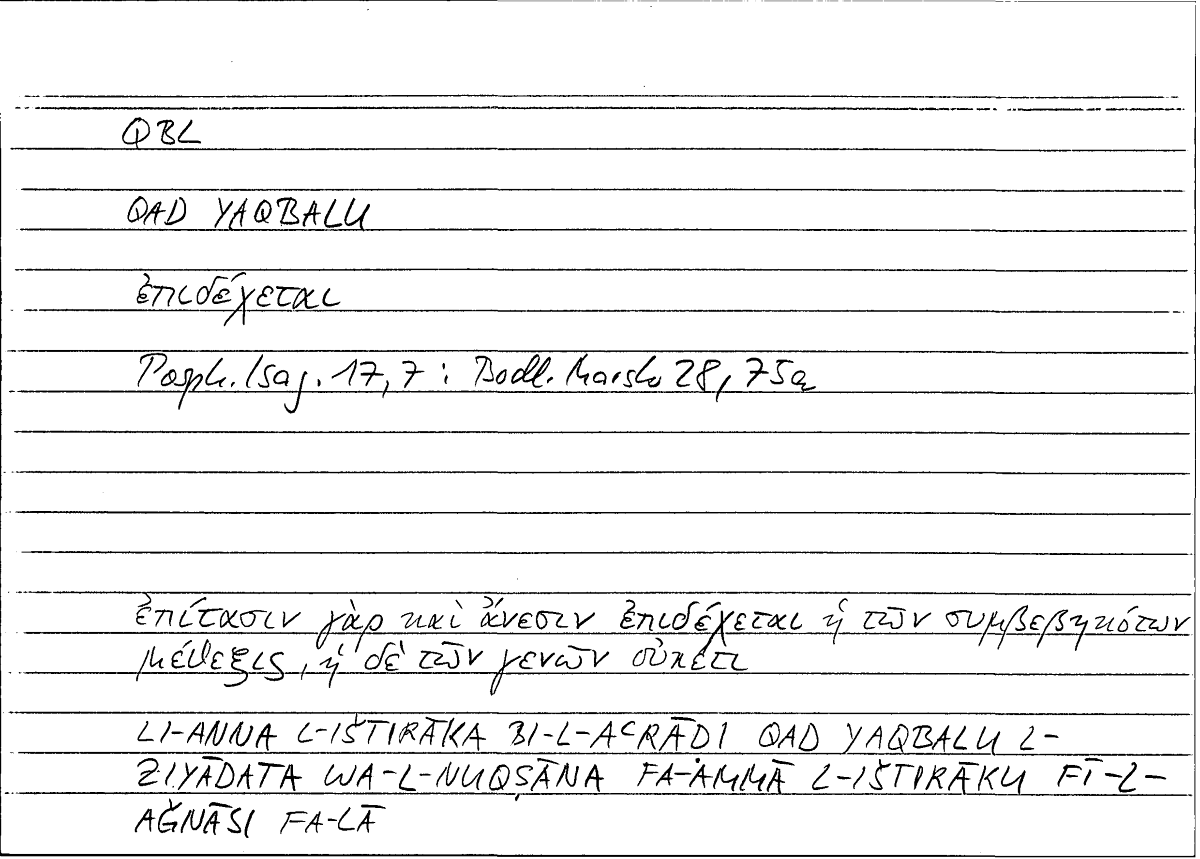 QBL
QAD YAQBALU
ἐπιδέχεται
Porph. Isag. 17,7 : Bodl. Marsh 28, 75a
ἐπίτασιν γὰρ καὶ ἄνεσιν ἐπιδέχεται ἡ τῶν συμβεβηκότων
μέθεξις, ἡ δὲ τῶν γενῶν οὐκέτι
LI-ANNA L-IŠTIRĀKA BI-L-AʿRĀḌI QAD YAQBALU L-
ZIYĀDATA WA-L-NUQṢĀNA FA-AMMĀ L-IŠTIRĀKU FĪ-L-
AǦNĀSI FA-LĀ